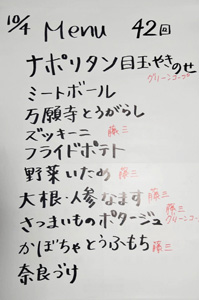 10/4 Menu 42回
ナポリタン目玉やきのせ
グリーンコープ
ミートボール
万願寺とうがらし
ズッキーニ 藤三
フライドポテト
野菜いため 藤三
大根・人参なます 藤三
さつまいものポタージュ 藤三 グリーンコープ
かぼちゃとうふもち 藤三
奈良づけ